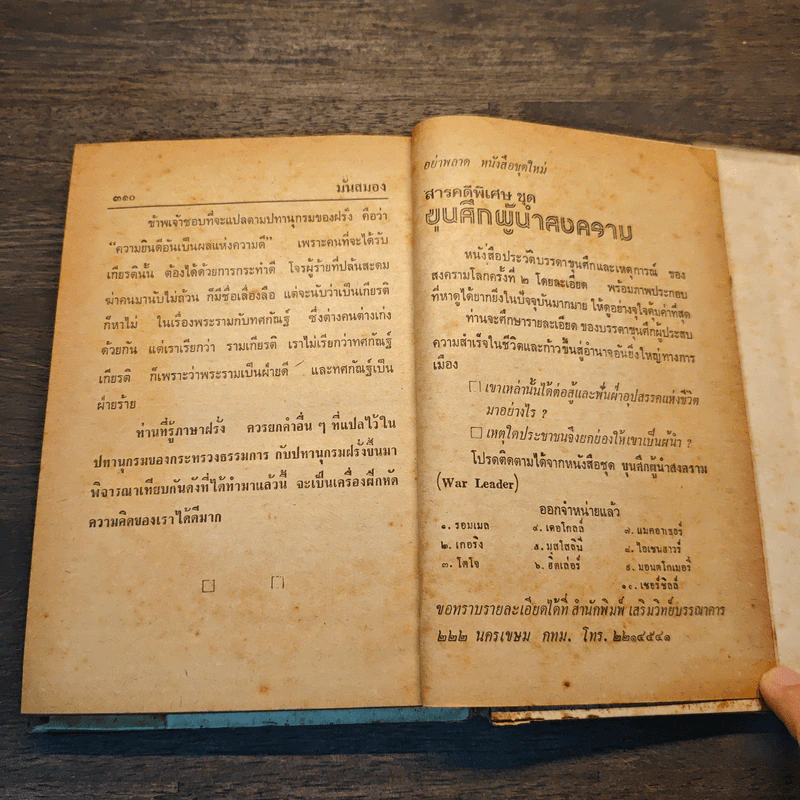 ๓๑๐ มันสมอง
ข้าพเจ้าชอบที่จะแปลตามปทานุกรมของฝรั่ง คือว่า
“ความยินดีอันเป็นผลแห่งความดี” เพราะคนที่จะได้รับ
เกียรตินั้น ต้องได้ด้วยการกระทำดี โจรผู้ร้ายที่ปล้นสะดม
ฆ่าคนมานับไม่ถ้วน ก็มีชื่อเลื่องลือ แต่จะนับว่าเป็นเกียรติ
ก็หาไม่ ในเรื่องพระรามกับทศกัณฐ์ ซึ่งต่างคนต่างเก่ง
ด้วยกัน แต่เราเรียกว่า รามเกียรติ เราไม่เรียกว่าทศกัณฐ์
เกียรติ ก็เพราะว่าพระรามเป็นฝ่ายดี และทศกัณฐ์เป็น
ฝ่ายร้าย
ท่านที่รู้ภาษาฝรั่ง ควรยกคำอื่น ๆ ที่แปลไว้ใน
ปทานุกรมของกระทรวงธรรมการ กับปทานุกรมฝรั่งขึ้นมา
พิจารณาเทียบกันดังที่ได้ทำมาแล้วนี้ จะเป็นเครื่องฝึกหัด
ความคิดของเราได้ดีมาก
อย่าพลาด หนังสือชุดใหม่
สารคดีพิเศษ ชุด
ขุนศึกผู้นำสงคราม
หนังสือประวัติบรรดาขุนศึกและเหตุการณ์ ของ
สงครามโลกครั้งที่ ๒ โดยละเอียด พร้อมภาพประกอบ
ที่หาดูได้ยากยิ่งในปัจจุบันมากมาย ให้ดูอย่างจุใจคุ้มค่าที่สุด
ท่านจะศึกษารายละเอียด ของบรรดาขุนศึกผู้ประสบ
ความสำเร็จในชีวิตและก้าวขึ้นสู่อำนาจอันยิ่งใหญ่ทางการ
เมือง
□ เขาเหล่านั้นได้ต่อสู้และฟันฝ่าอุปสรรคแห่งชีวิต
มาอย่างไร ?
□ เหตุใดประชาชนจึงยกย่องให้เขาเป็นผู้นำ ?
โปรดติดตามได้จากหนังสือชุด ขุนศึกผู้นำสงคราม
(War Leader)
ออกจำหน่ายแล้ว
๑. รอมเมล ๔. เดอโกลล์ ๗. แมคอาเธอร์
๒. เกอริง ๕. มุสโสลินี ๘. ไอเซนฮาวร์
๓. โตโจ ๖. ฮิตเล่อร์ ๙. มอนตโกเมอรี่
๑๐. เชอร์ชิลล์
ขอทราบรายละเอียดได้ที่ สำนักพิมพ์ เสริมวิทย์บรรณาคาร
๒๒๒ นครเขษม กทม. โทร. ๒๒๑๔๕๔๑